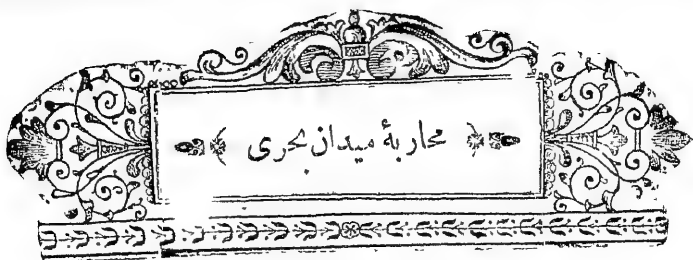 محاربهٔ میدان بحری